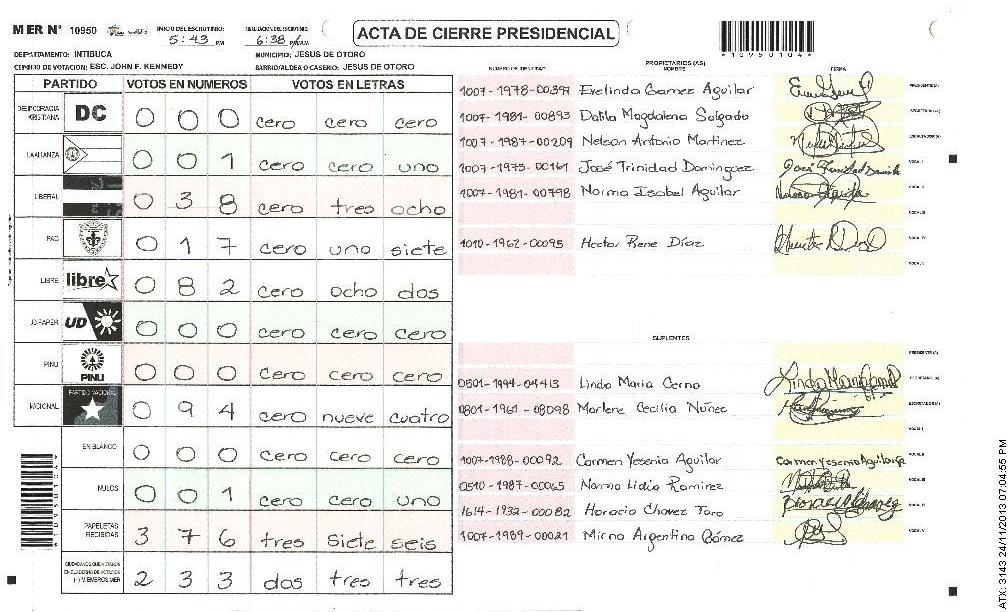 MER Nº 10950
INICIO DEL ESCRUTINIO:
5:43 PM
6:38 PM/AM
ACTA DE CIERRE PRESIDENCIAL
*10950104*
DEPARTAMENTO: INTIBUCA
MUNICIPIO: JESUS DE OTORO
CENTRO DE VOTACION: ESC. JOHN F. KENNEDY
BARRIO/ALDEA O CASERIO: JESUS DE OTORO
PARTIDO VOTOS EN NUMEROS VOTOS EN LETRAS
DEMOCRACIA CRISTIANA DC 0 0 0 cero cero cero
LA ALIANZA 0 0 1 cero cero uno
LIBERAL 0 3 8 cero tres ocho
PAC 0 1 7 cero uno siete
LIBRE libre 0 8 2 cero ocho dos
UD-FAPER UD 0 0 0 cero cero cero
PINU PINU 0 0 0 cero cero cero
NACIONAL PARTIDO NACIONAL 0 9 4 cero nueve cuatro
EN BLANCO 0 0 0 cero cero cero
NULOS 0 0 1 cero cero uno
PAPELETAS RECIBIDAS 3 7 6 tres siete seis
CIUDADANOS QUE VOTARON EN CUADERNO DE VOTACION (+) MIEMBROS MER 2 3 3 dos tres tres
PROPIETARIOS (AS)
NUMERO DE IDENTIDAD NOMBRE FIRMA
1007-1978-00397 Evelinda Gamez Aguilar PRESIDENTE(A)
1007-1981-00893 Dalila Magdalena Salgado SECRETARIO(A)
1007-1987-00209 Nelson Antonio Martinez ESCRUTADOR(A)
1007-1975-00161 José Trinidad Dominguez VOCAL I
1007-1981-00798 Norma Isabel Aguilar VOCAL II
VOCAL III
1010-1962-00095 Hector Rene Díaz VOCAL IV
VOCAL V
SUPLENTES
PRESIDENTE(A)
0501-1994-04413 Linda Maria Cerno SECRETARIO(A)
0801-1961-08098 Marlene Cecilia Núnez ESCRUTADOR(A)
VOCAL I
1007-1988-00092 Carmen Yesenia Aguilar VOCAL II
0510-1987-00065 Norma Lidia Ramirez VOCAL III
1614-1932-00082 Horacio Chavez Toro VOCAL IV
1007-1989-00021 Mirna Argentina Gámez VOCAL V
ATX: 3143 24/11/2013 07:04:55 PM